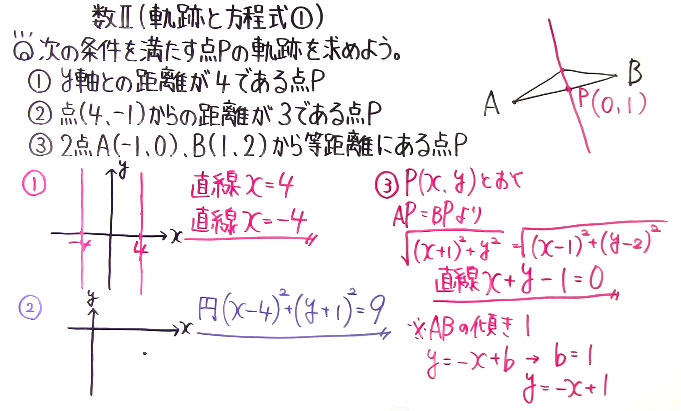 数Ⅱ(軌跡と方程式①)
次の条件を満たす点Pの軌跡を求めよう。
① y軸との距離が4である点P
② 点(4,-1)からの距離が3である点P
③ 2点A(-1,0)、B(1,2)から等距離にある点P
A
B
P(0,1)
①
y
x
-4
4
直線x=4
直線x=-4
②
y
x
円(x-4)²+(y+1)²=9
③ P(x,y)とおく
AP=BPより
√(x+1)²+y² = √(x-1)²+(y-2)²
直線x+y-1=0
※ABの傾き1
y=-x+b → b=1
y=-x+1